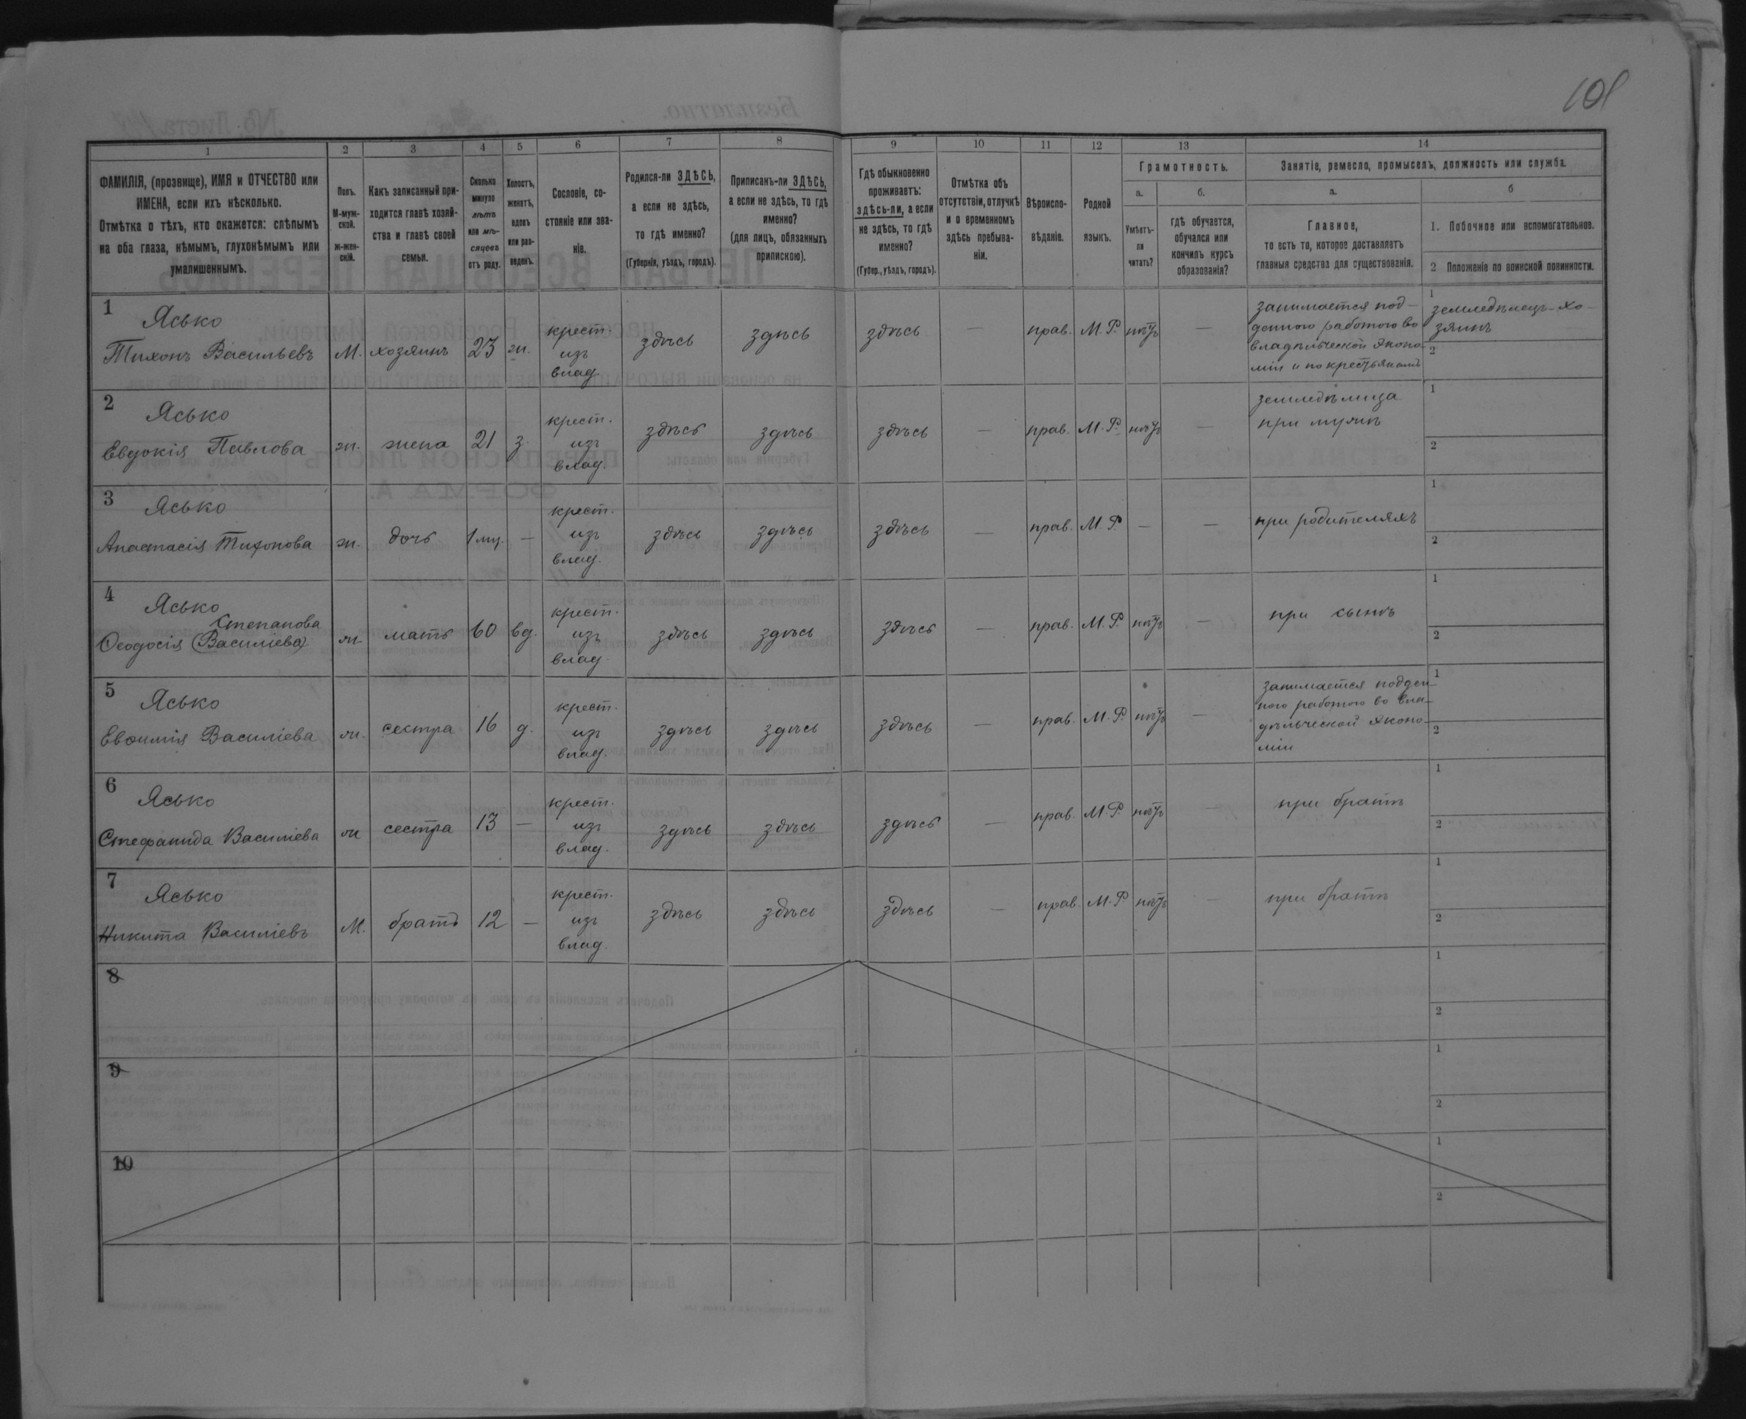 108
1 2 3 4 5 6 7 8 9 10 11 12 13 14
ФАМИЛІЯ, (прозвище), ИМЯ и ОТЧЕСТВО или
ИМЕНА, если ихъ нѣсколько.
Отмѣтка о тѣхъ, кто окажется: слѣпымъ
на оба глаза, нѣмымъ, глухонѣмымъ или
умалишеннымъ.
Полъ.
М-муж-
ской.
ж-жен-
скій.
Какъ записанный при-
ходится главѣ хозяй-
ства и главѣ своей
семьи.
Сколько
минуло
лѣтъ
или мѣ-
сяцевъ
отъ роду.
Холостъ,
женатъ,
вдовъ
или раз-
веденъ.
Сословіе, со-
стояніе или зва-
ніе.
Родился-ли ЗДѢСЬ,
а если не здѣсь,
то гдѣ именно?
(Губернія, уѣздъ, городъ).
Приписанъ-ли ЗДѢСЬ,
а если не здѣсь, то гдѣ
именно?
(для лицъ, обязанныхъ
припискою).
Гдѣ обыкновенно
проживаетъ:
здѣсь-ли, а если
не здѣсь, то гдѣ
именно?
(Губер., уѣздъ, городъ).
Отмѣтка объ
отсутствіи, отлучкѣ
и о временномъ
здѣсь пребыва-
ніи.
Вѣроиспо-
вѣданіе.
Родной
языкъ.
Грамотность.
а.
Умѣетъ-
ли
читать?
б.
гдѣ обучается,
обучался или
кончилъ курсъ
образованія?
Занятіе, ремесло, промыселъ, должность или служба.
а.
Главное,
то есть то, которое доставляетъ
главныя средства для существованія.
б
1. Побочное или вспомогательное.
2. Положеніе по воинской повинности.
1 Яcько
Тихонъ Васильевъ М. хозяинъ 23 ж. крест. изъ влад. здѣсь здѣсь здѣсь — прав. М.Р. нѣтъ —
занимается под-
денною работою во
владѣльческой эконо-
міи и по крестьянамъ
1 земледѣлецъ-хо-
зяинъ
2
2 Ясько
Евдокія Павлова ж. жена 21 з. крест. изъ влад. здѣсь здѣсь здѣсь — прав. М.Р. нѣтъ —
земледѣлица
при мужѣ
1
2
3 Ясько
Анастасія Тихонова ж. дочь 1 м. — крест. изъ влад. здѣсь здѣсь здѣсь — прав. М.Р. — — при родителяхъ
1
2
4 Ясько
Степанова
Ѳеодосія (Василіева) ж. мать 60 вд. крест. изъ влад. здѣсь здѣсь здѣсь — прав. М.Р. нѣтъ — при сынѣ
1
2
5 Ясько
Евѳимія Василіева ж. сестра 16 д. крест. изъ влад. здѣсь здѣсь здѣсь — прав. М.Р. нѣтъ —
занимаетсяподден-
ною работою во вла-
дѣльческой эконо-
міи
1
2
6 Ясько
Стефанида Василіева ж. сестра 13 — крест. изъ влад. здѣсь здѣсь здѣсь — прав. М.Р. нѣтъ — при братѣ
1
2
7 Ясько
Никита Василіевъ М. братъ 12 — крест. изъ влад. здѣсь здѣсь здѣсь — прав. М.Р. нѣтъ — при братѣ
1
2
8
1
2
9
1
2
10
1
2